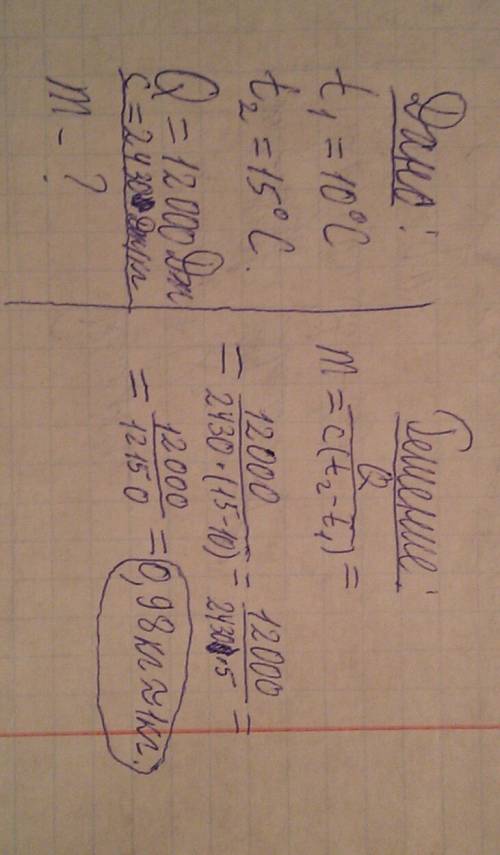 Дано:
t₁ = 10°C
t₂ = 15°C.
Q = 12000 Дж
c = 2430 Дж/кг
m - ?
Решение:
m = Q / c(t₂ - t₁) =
= 12000 / 2430 · (15 - 10) = 12000 / 2430 · 5 =
= 12000 / 12150 = 0,98 кг ≈ 1 кг.